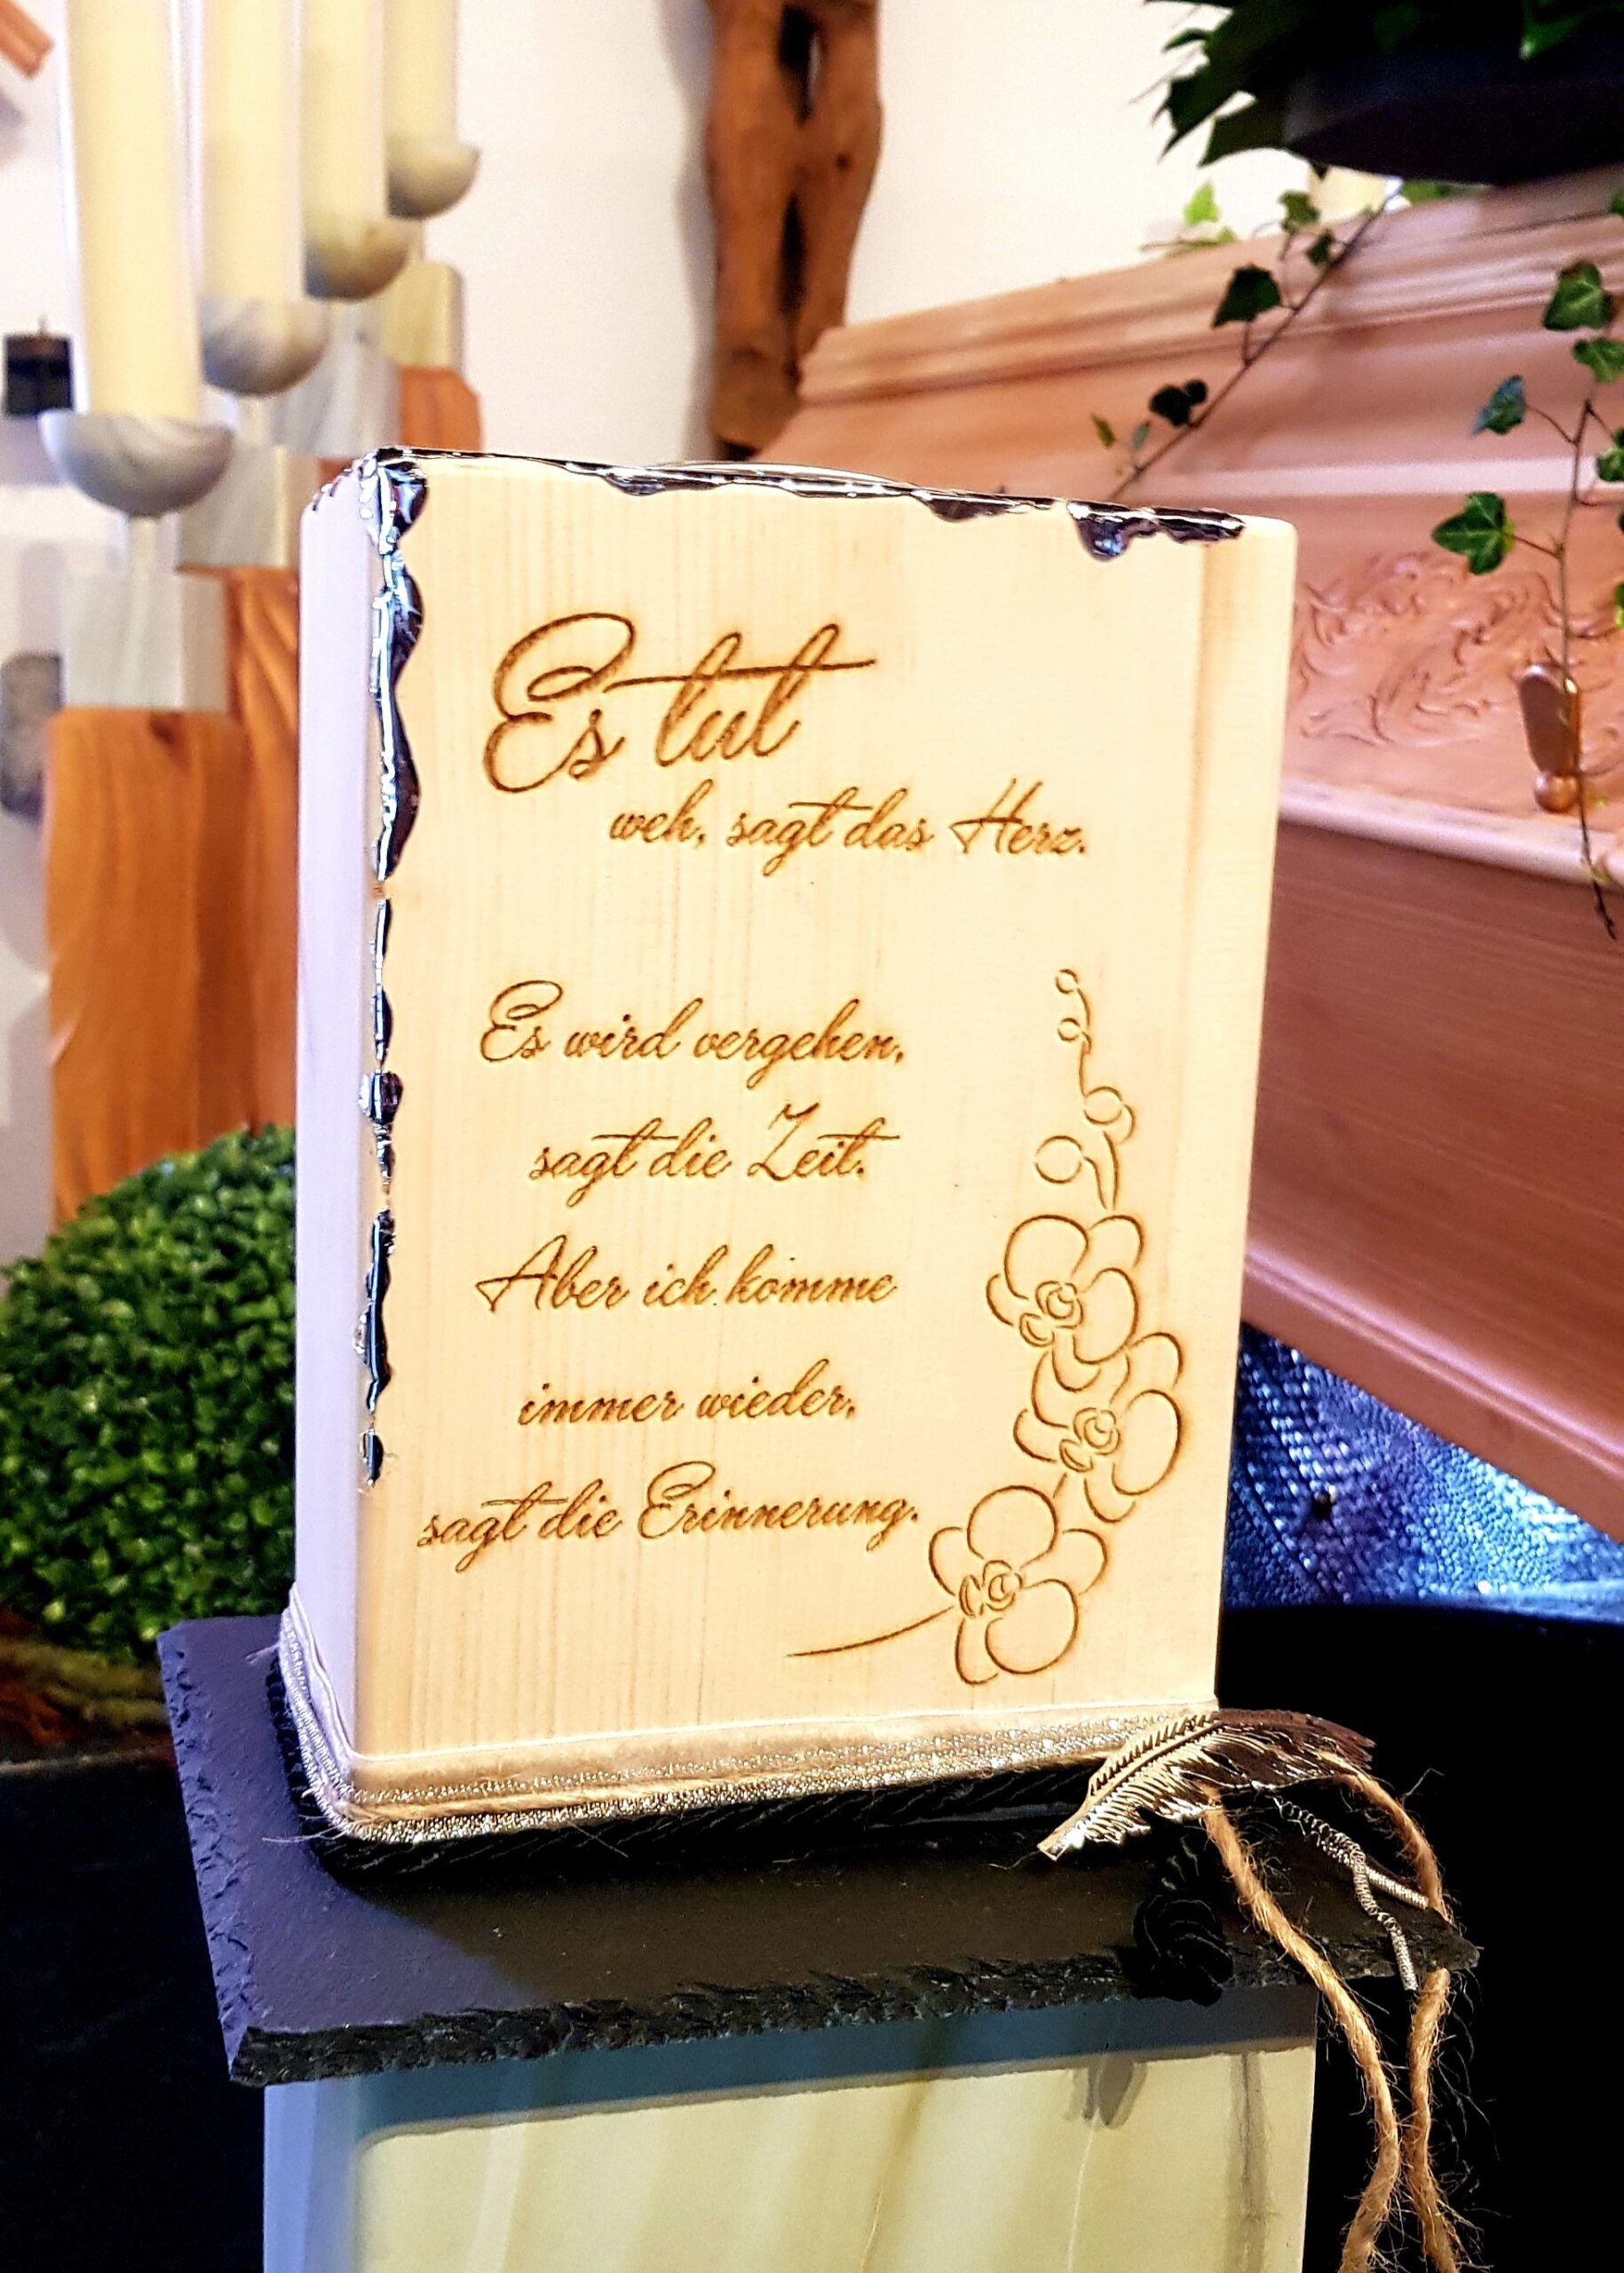 Es tut
weh, sagt das Herz.
Es wird vergehen,
sagt die Zeit.
Aber ich komme
immer wieder,
sagt die Erinnerung.